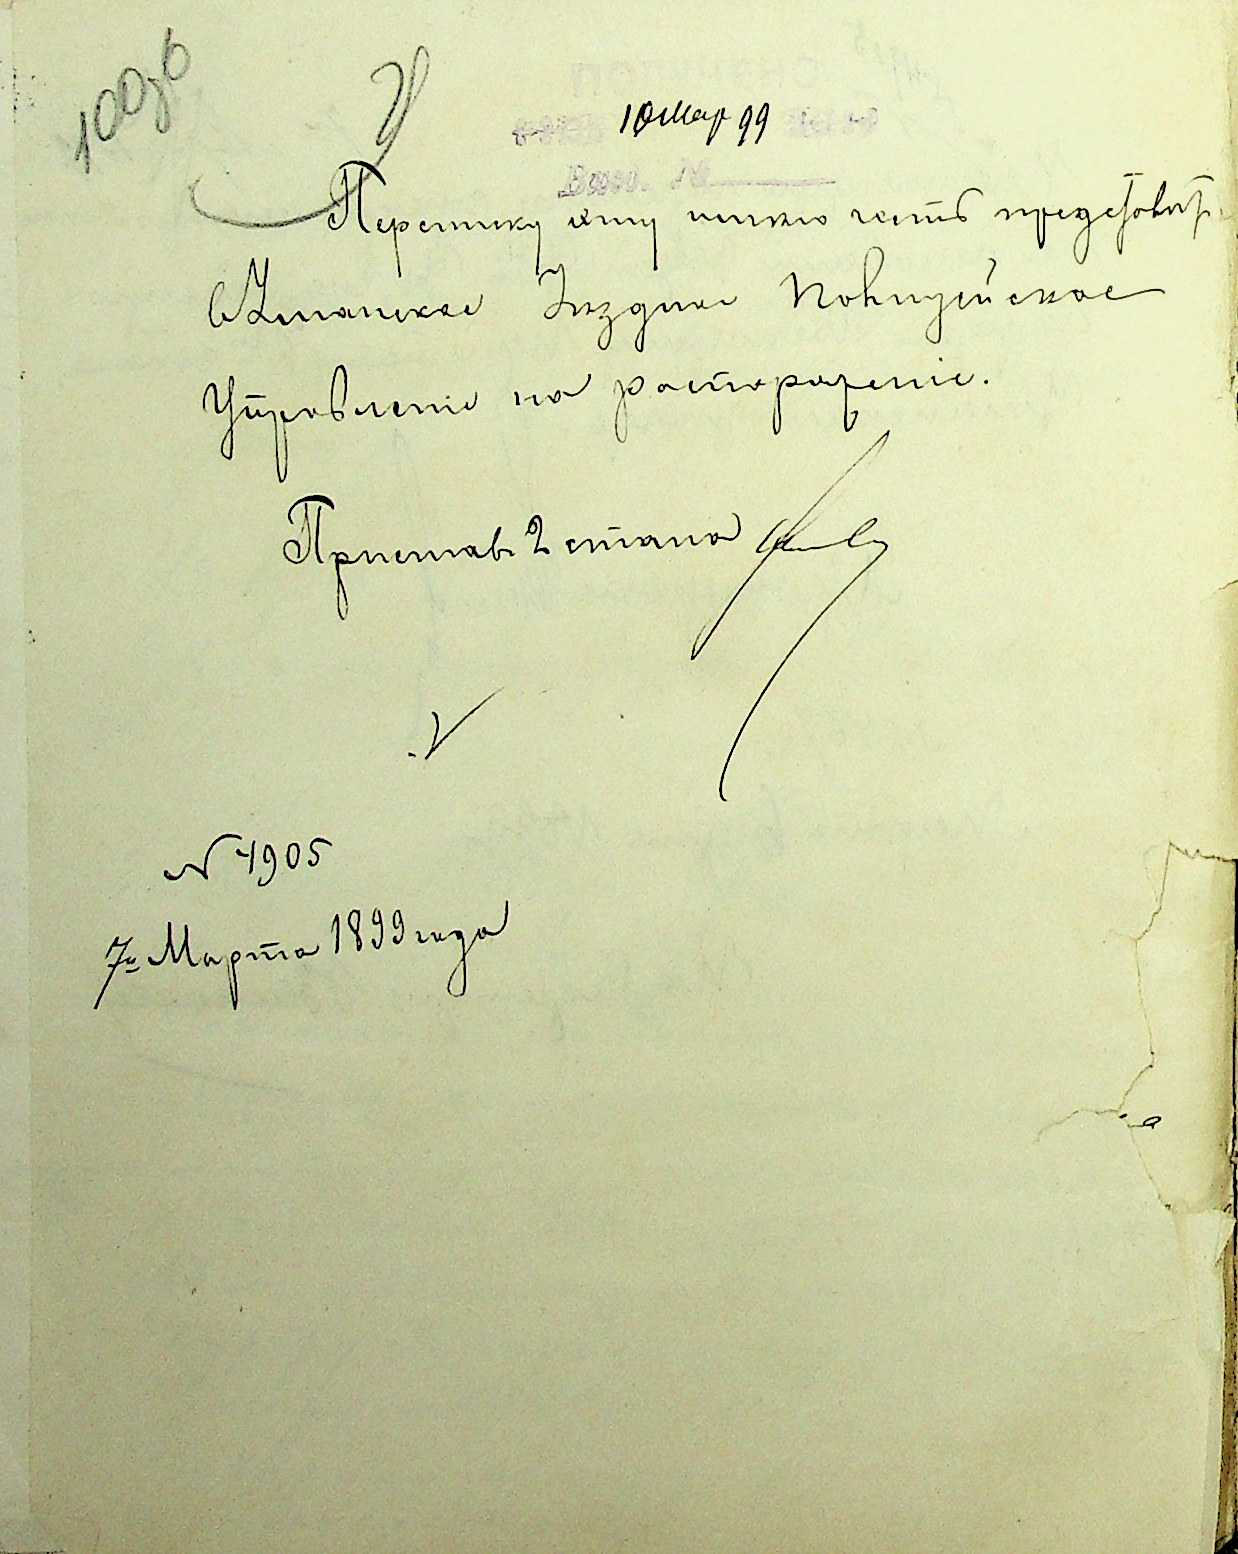 10 Мар 99
Вход. №
Переписку эту имею честь представить
въ Уманское Уѣздное Полицейское
Управленіе на распоряженіе.
Приставъ 2 стана
№ 1905
7 Марта 1899 года